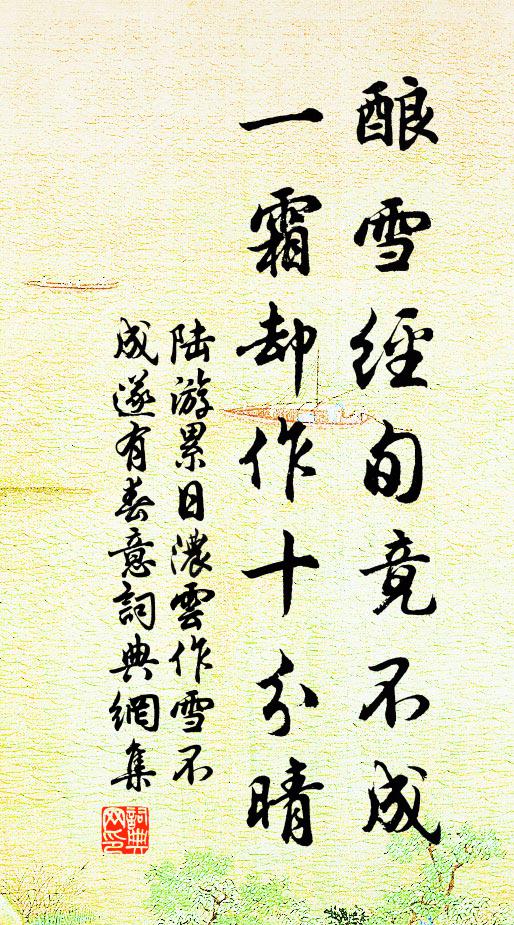 酿雪經旬竟不成
一霜却作十分晴
陆游累日濃雲作雪不
成遂有春意詞典網集
詞典
网印